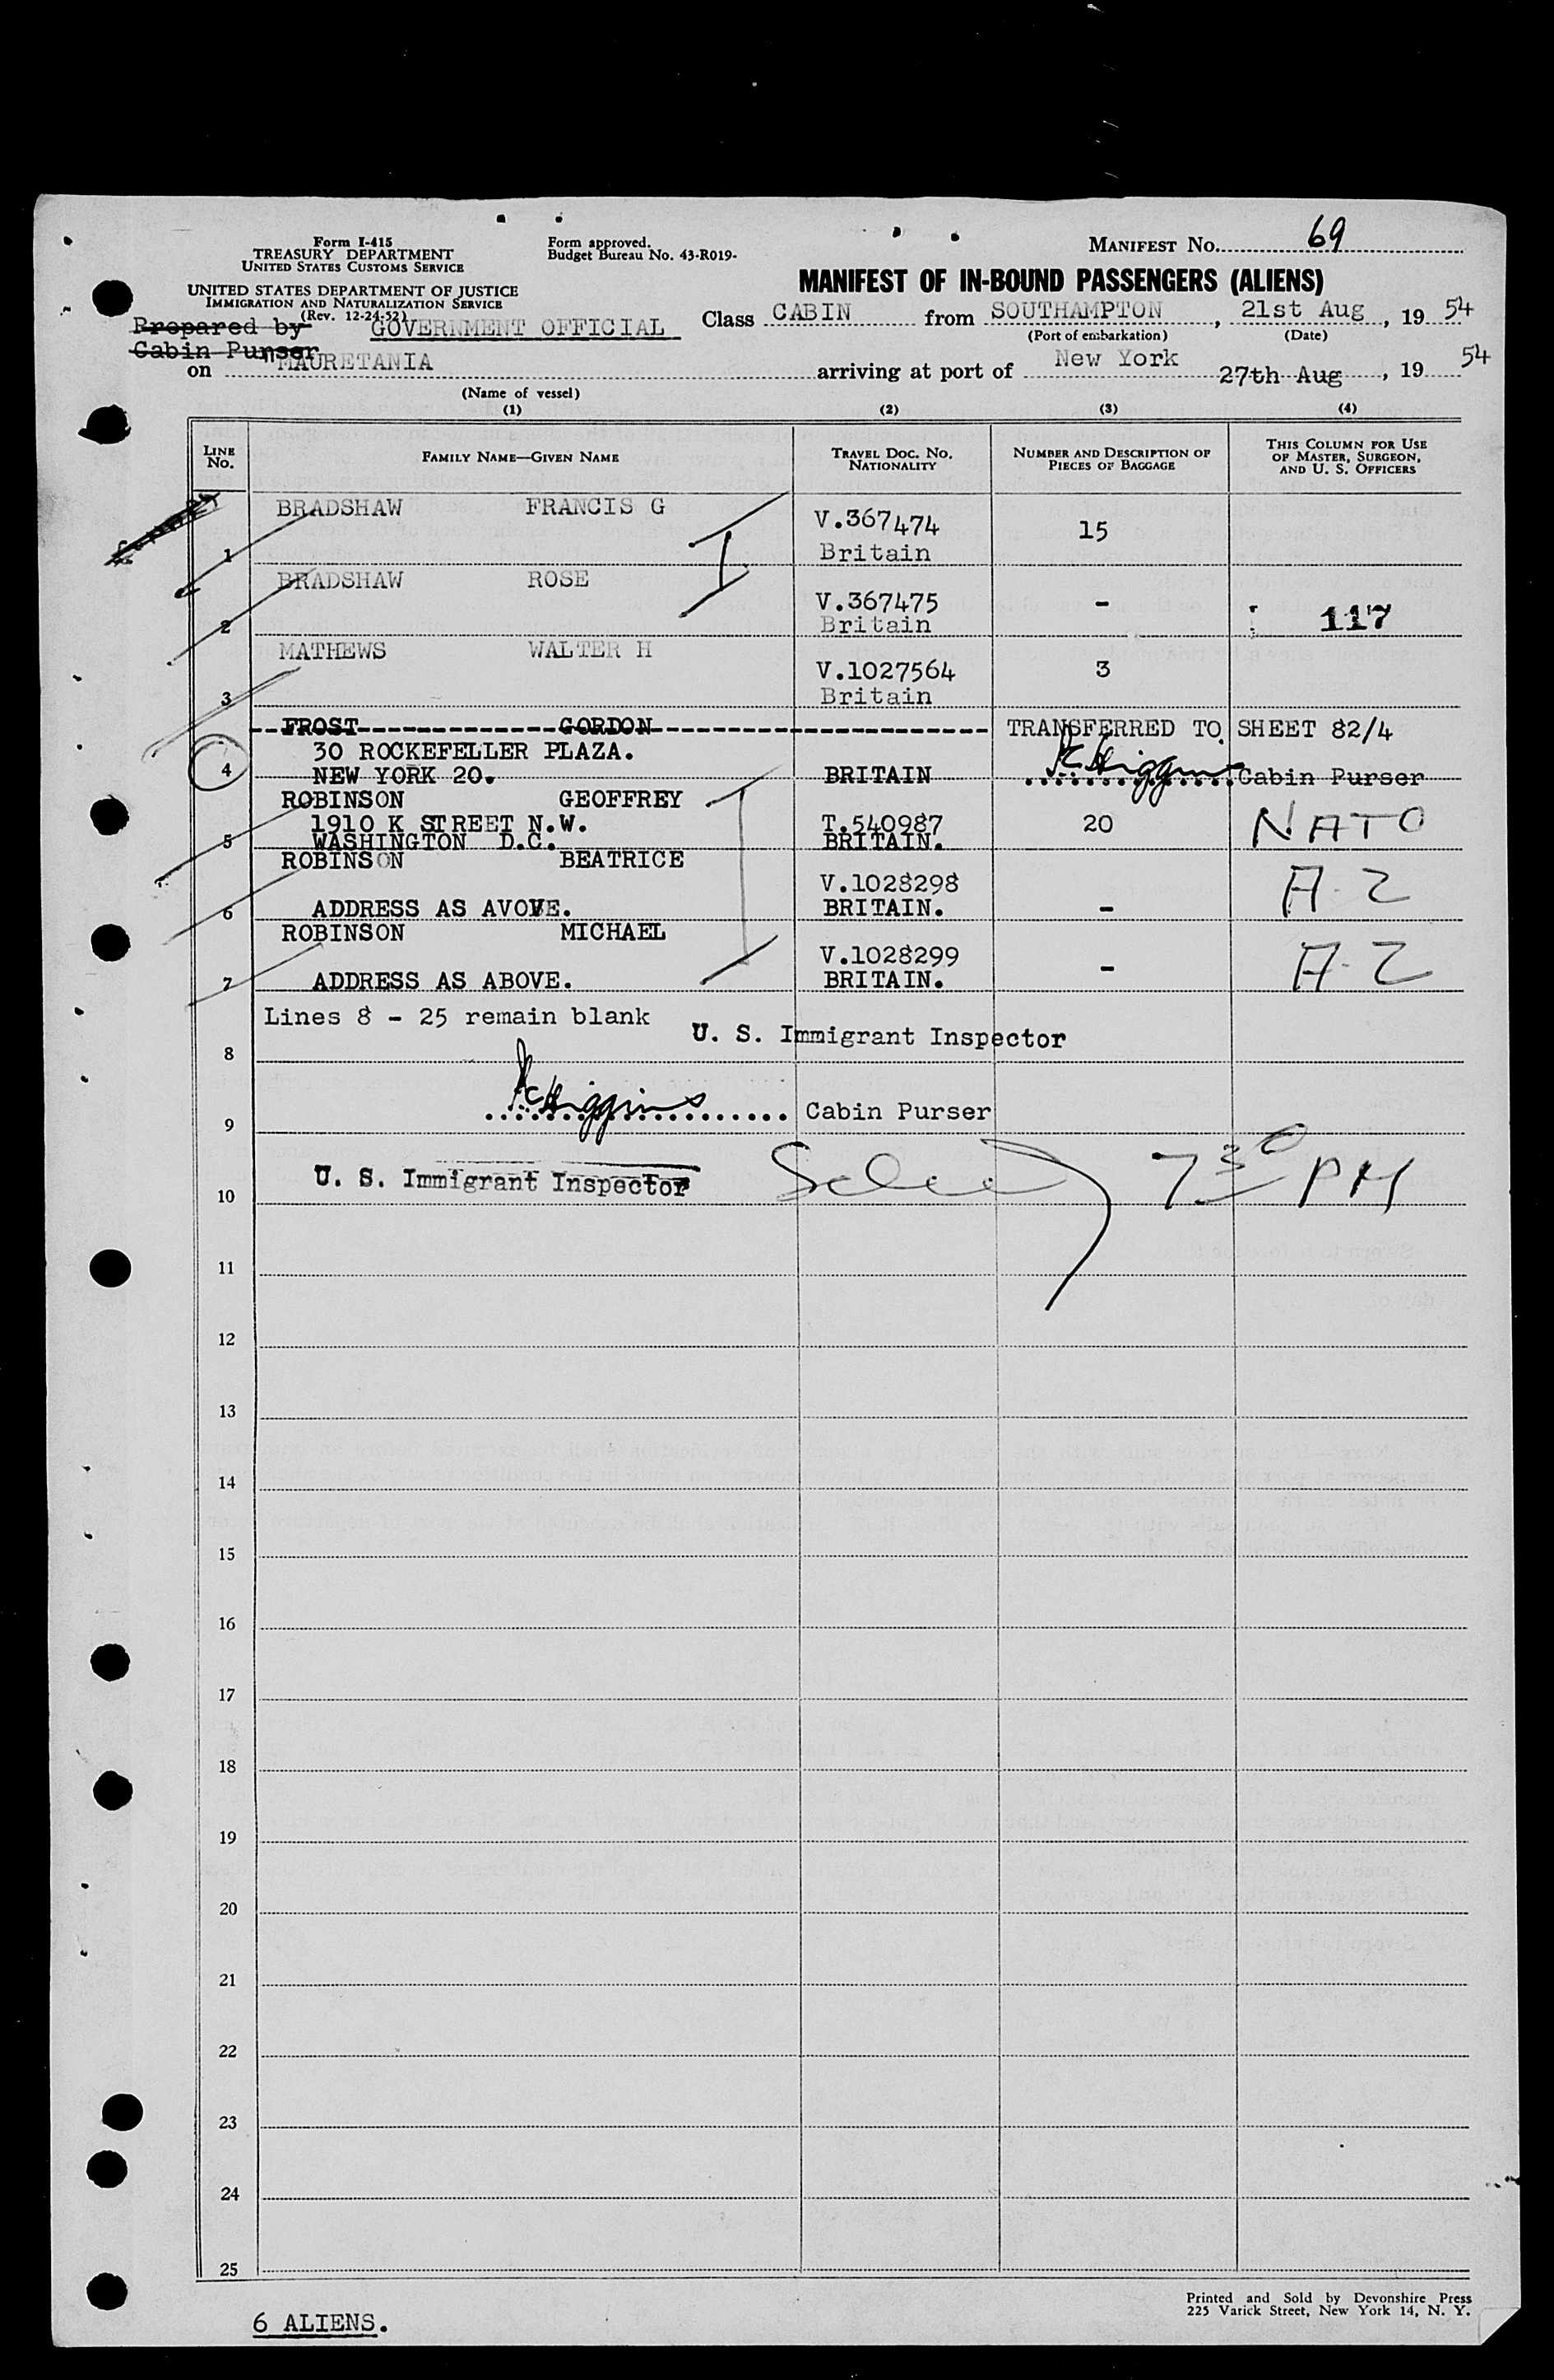 Form I-415
TREASURY DEPARTMENT
UNITED STATES CUSTOMS SERVICE
Form approved.
Budget Bureau No. 43-R019-
MANIFEST No. 69
UNITED STATES DEPARTMENT OF JUSTICE
IMMIGRATION AND NATURALIZATION SERVICE
(Rev. 12-24-52)
MANIFEST OF IN-BOUND PASSENGERS (ALIENS)
Prepared by
Cabin Purser
GOVERNMENT OFFICIAL
Class CABIN from SOUTHAMPTON, 21st Aug, 19 54
(Port of embarkation) (Date)
on "MAURETANIA arriving at port of New York 27th Aug, 19 54
(Name of vessel)
(1) (2) (3) (4)
LINE No. FAMILY NAME—GIVEN NAME TRAVEL DOC. NO. NATIONALITY NUMBER AND DESCRIPTION OF PIECES OF BAGGAGE THIS COLUMN FOR USE OF MASTER, SURGEON, AND U. S. OFFICERS
BRADSHAW FRANCIS G V.367474 15
1 Britain
BRADSHAW ROSE V.367475 -
2 Britain 117
MATHEWS WALTER H V.1027564 3
3 Britain
FROST GORDON TRANSFERRED TO SHEET 82/4
30 ROCKEFELLER PLAZA.
4 NEW YORK 20. BRITAIN Higgins Cabin Purser
ROBINSON GEOFFREY
1910 K STREET N.W. T.540987 20 NATO
5 WASHINGTON D.C. BRITAIN.
ROBINSON BEATRICE
V.1028298 A-2
6 ADDRESS AS AVOVE. BRITAIN. -
ROBINSON MICHAEL
V.1028299 A-2
7 ADDRESS AS ABOVE. BRITAIN. -
Lines 8 - 25 remain blank
U. S. Immigrant Inspector
8
Higgins Cabin Purser
9
U. S. Immigrant Inspector 7 30 PM
10
11
12
13
14
15
16
17
18
19
20
21
22
23
24
25
6 ALIENS.
Printed and Sold by Devonshire Press
225 Varick Street, New York 14, N. Y.